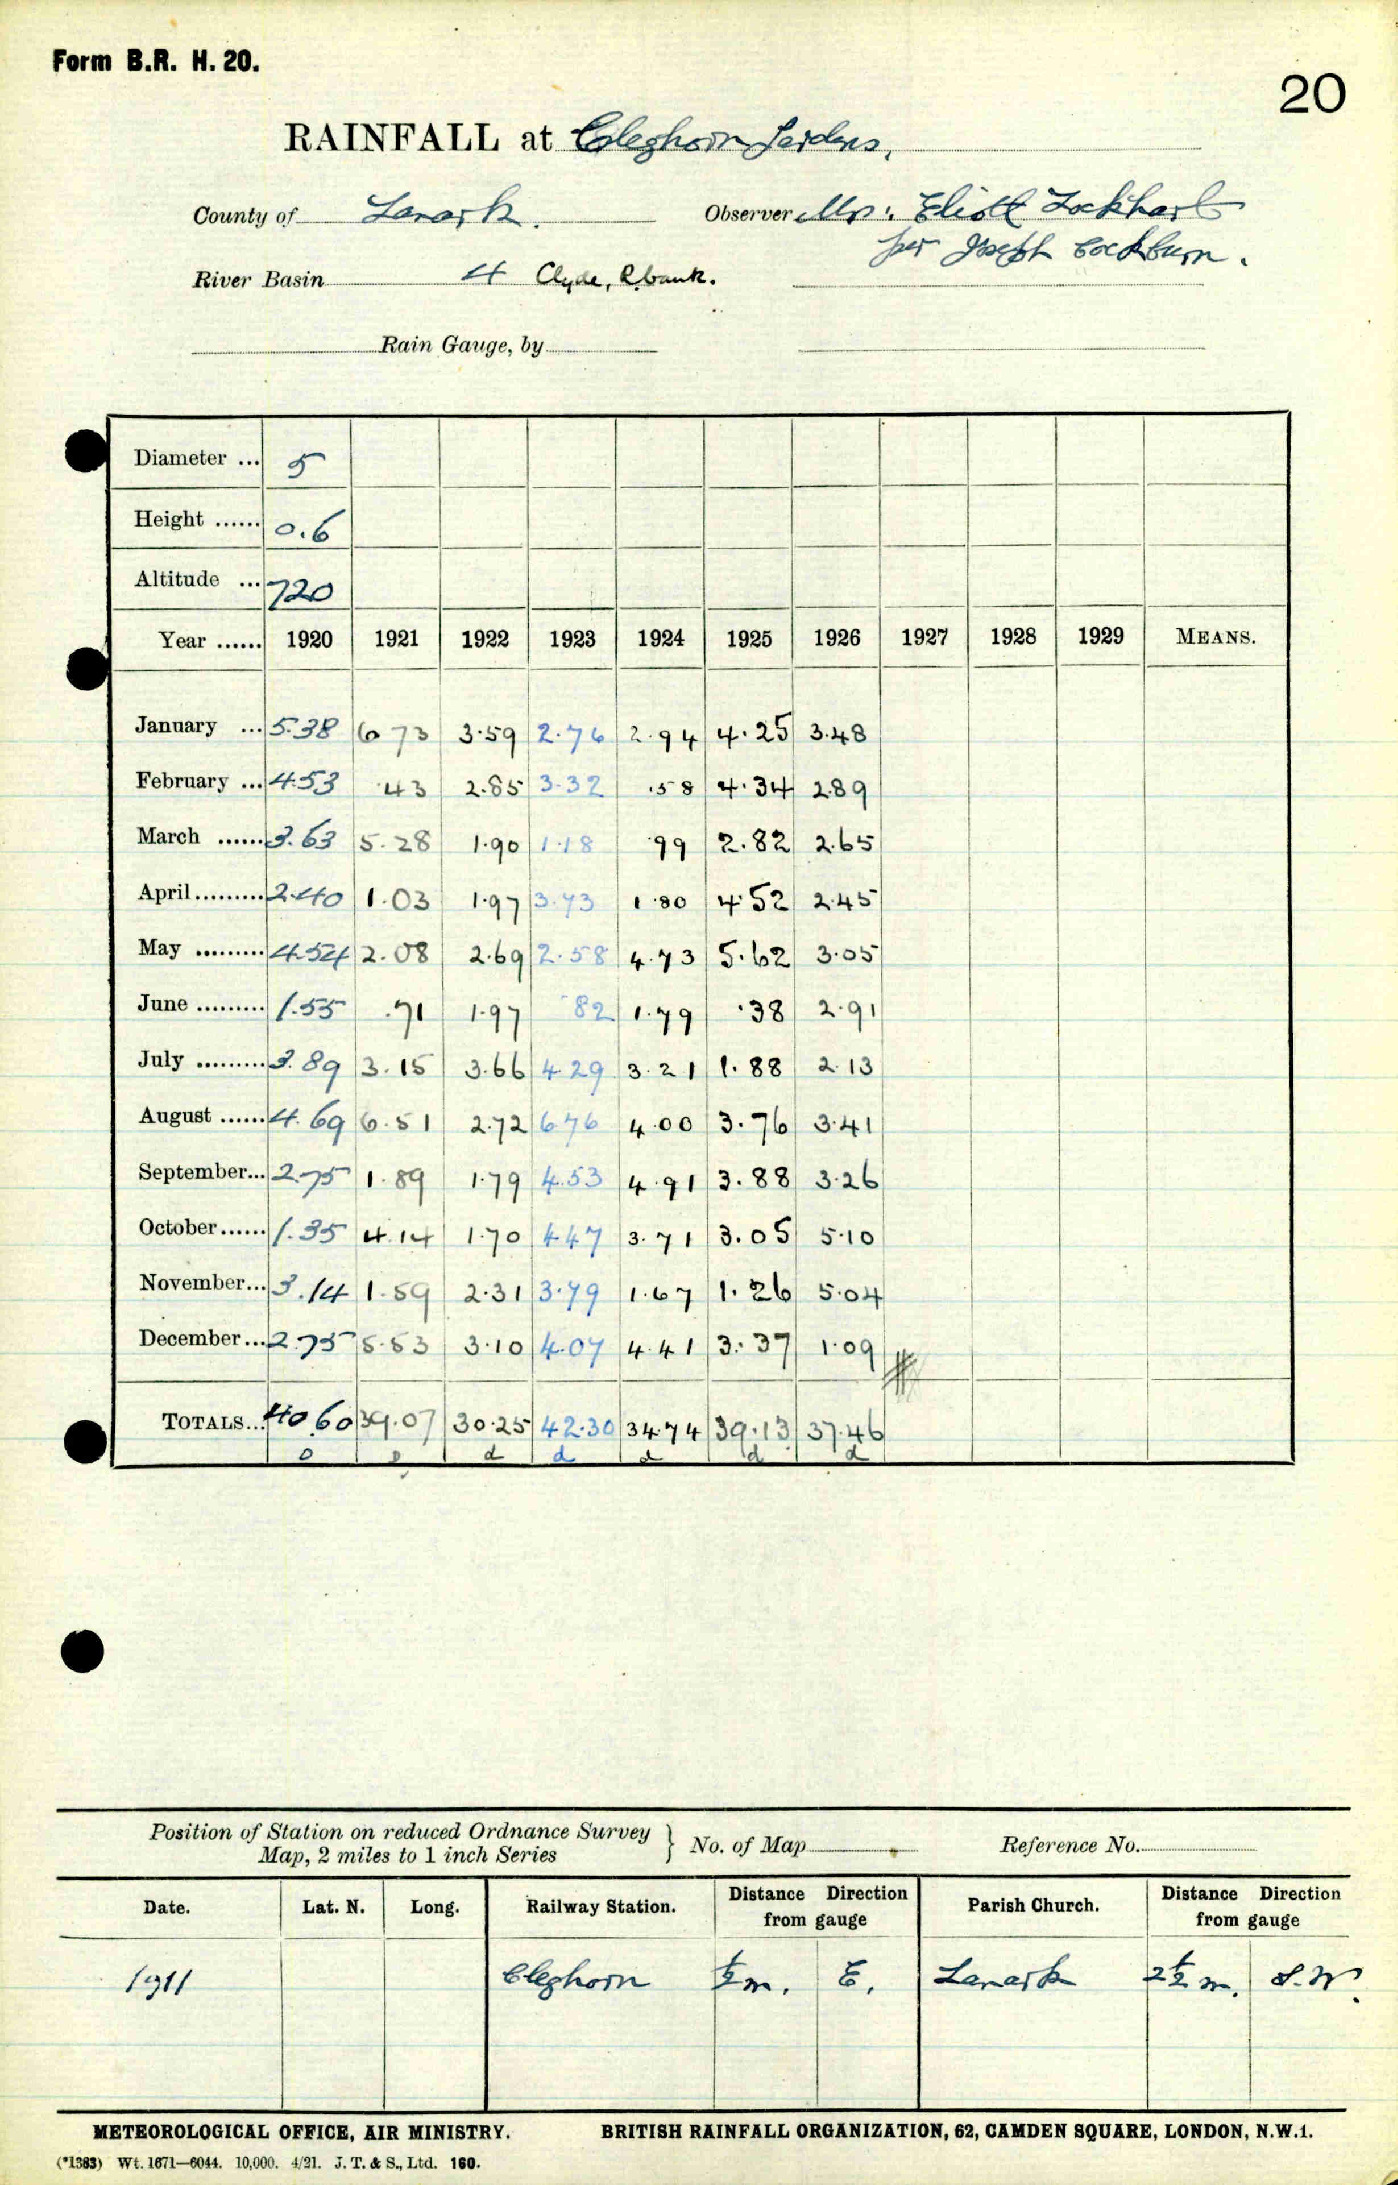 Form B.R. H. 20.
20
RAINFALL at Cleghorn Gardens.
County of Lanark. Observer Mrs: Eliott Lockhart
per Joseph Cockburn.
River Basin 4 Clyde, R. bank.
Rain Gauge, by
Diameter ... 5
Height ...... 0.6
Altitude ... 720
Year ...... 1920 1921 1922 1923 1924 1925 1926 1927 1928 1929 MEANS.
January ... 5.38 6 73 3.59 2.76 2.94 4.25 3.48
February ... 4.53 .43 2.85 3.32 .58 4.34 2.89
March ...... 3.63 5.28 1.90 1.18 .99 2.82 2.65
April......... 2.40 1.03 1.97 3.73 1.80 4.52 2.45
May ......... 4.54 2.08 2.69 2.58 4.73 5.62 3.05
June ......... 1.55 .71 1.97 .82 1.79 .38 2.91
July ......... 3.89 3.15 3.66 4.29 3.21 1.88 2.13
August ...... 4.69 6.51 2.72 6.76 4.00 3.76 3.41
September... 2.75 1.89 1.79 4.53 4.91 3.88 3.26
October...... 1.35 4.14 1.70 4.47 3.71 3.05 5.10
November... 3.14 1.59 2.31 3.79 1.67 1.26 5.04
December... 2.75 5.53 3.10 4.07 4.41 3.37 1.09
TOTALS... 40.60 39.07 30.25 42.30 34.74 39.13 37.46
d d d d d
Position of Station on reduced Ordnance Survey
Map, 2 miles to 1 inch Series } No. of Map Reference No.
Date. Lat. N. Long. Railway Station. Distance Direction from gauge Parish Church. Distance Direction from gauge
1911 Cleghorn ½ m. E. Lanark 2½ m. S.W.
METEOROLOGICAL OFFICE, AIR MINISTRY. BRITISH RAINFALL ORGANIZATION, 62, CAMDEN SQUARE, LONDON, N.W.1.
(*1383) Wt. 1671—6044. 10,000. 4/21. J. T. & S., Ltd. 160.